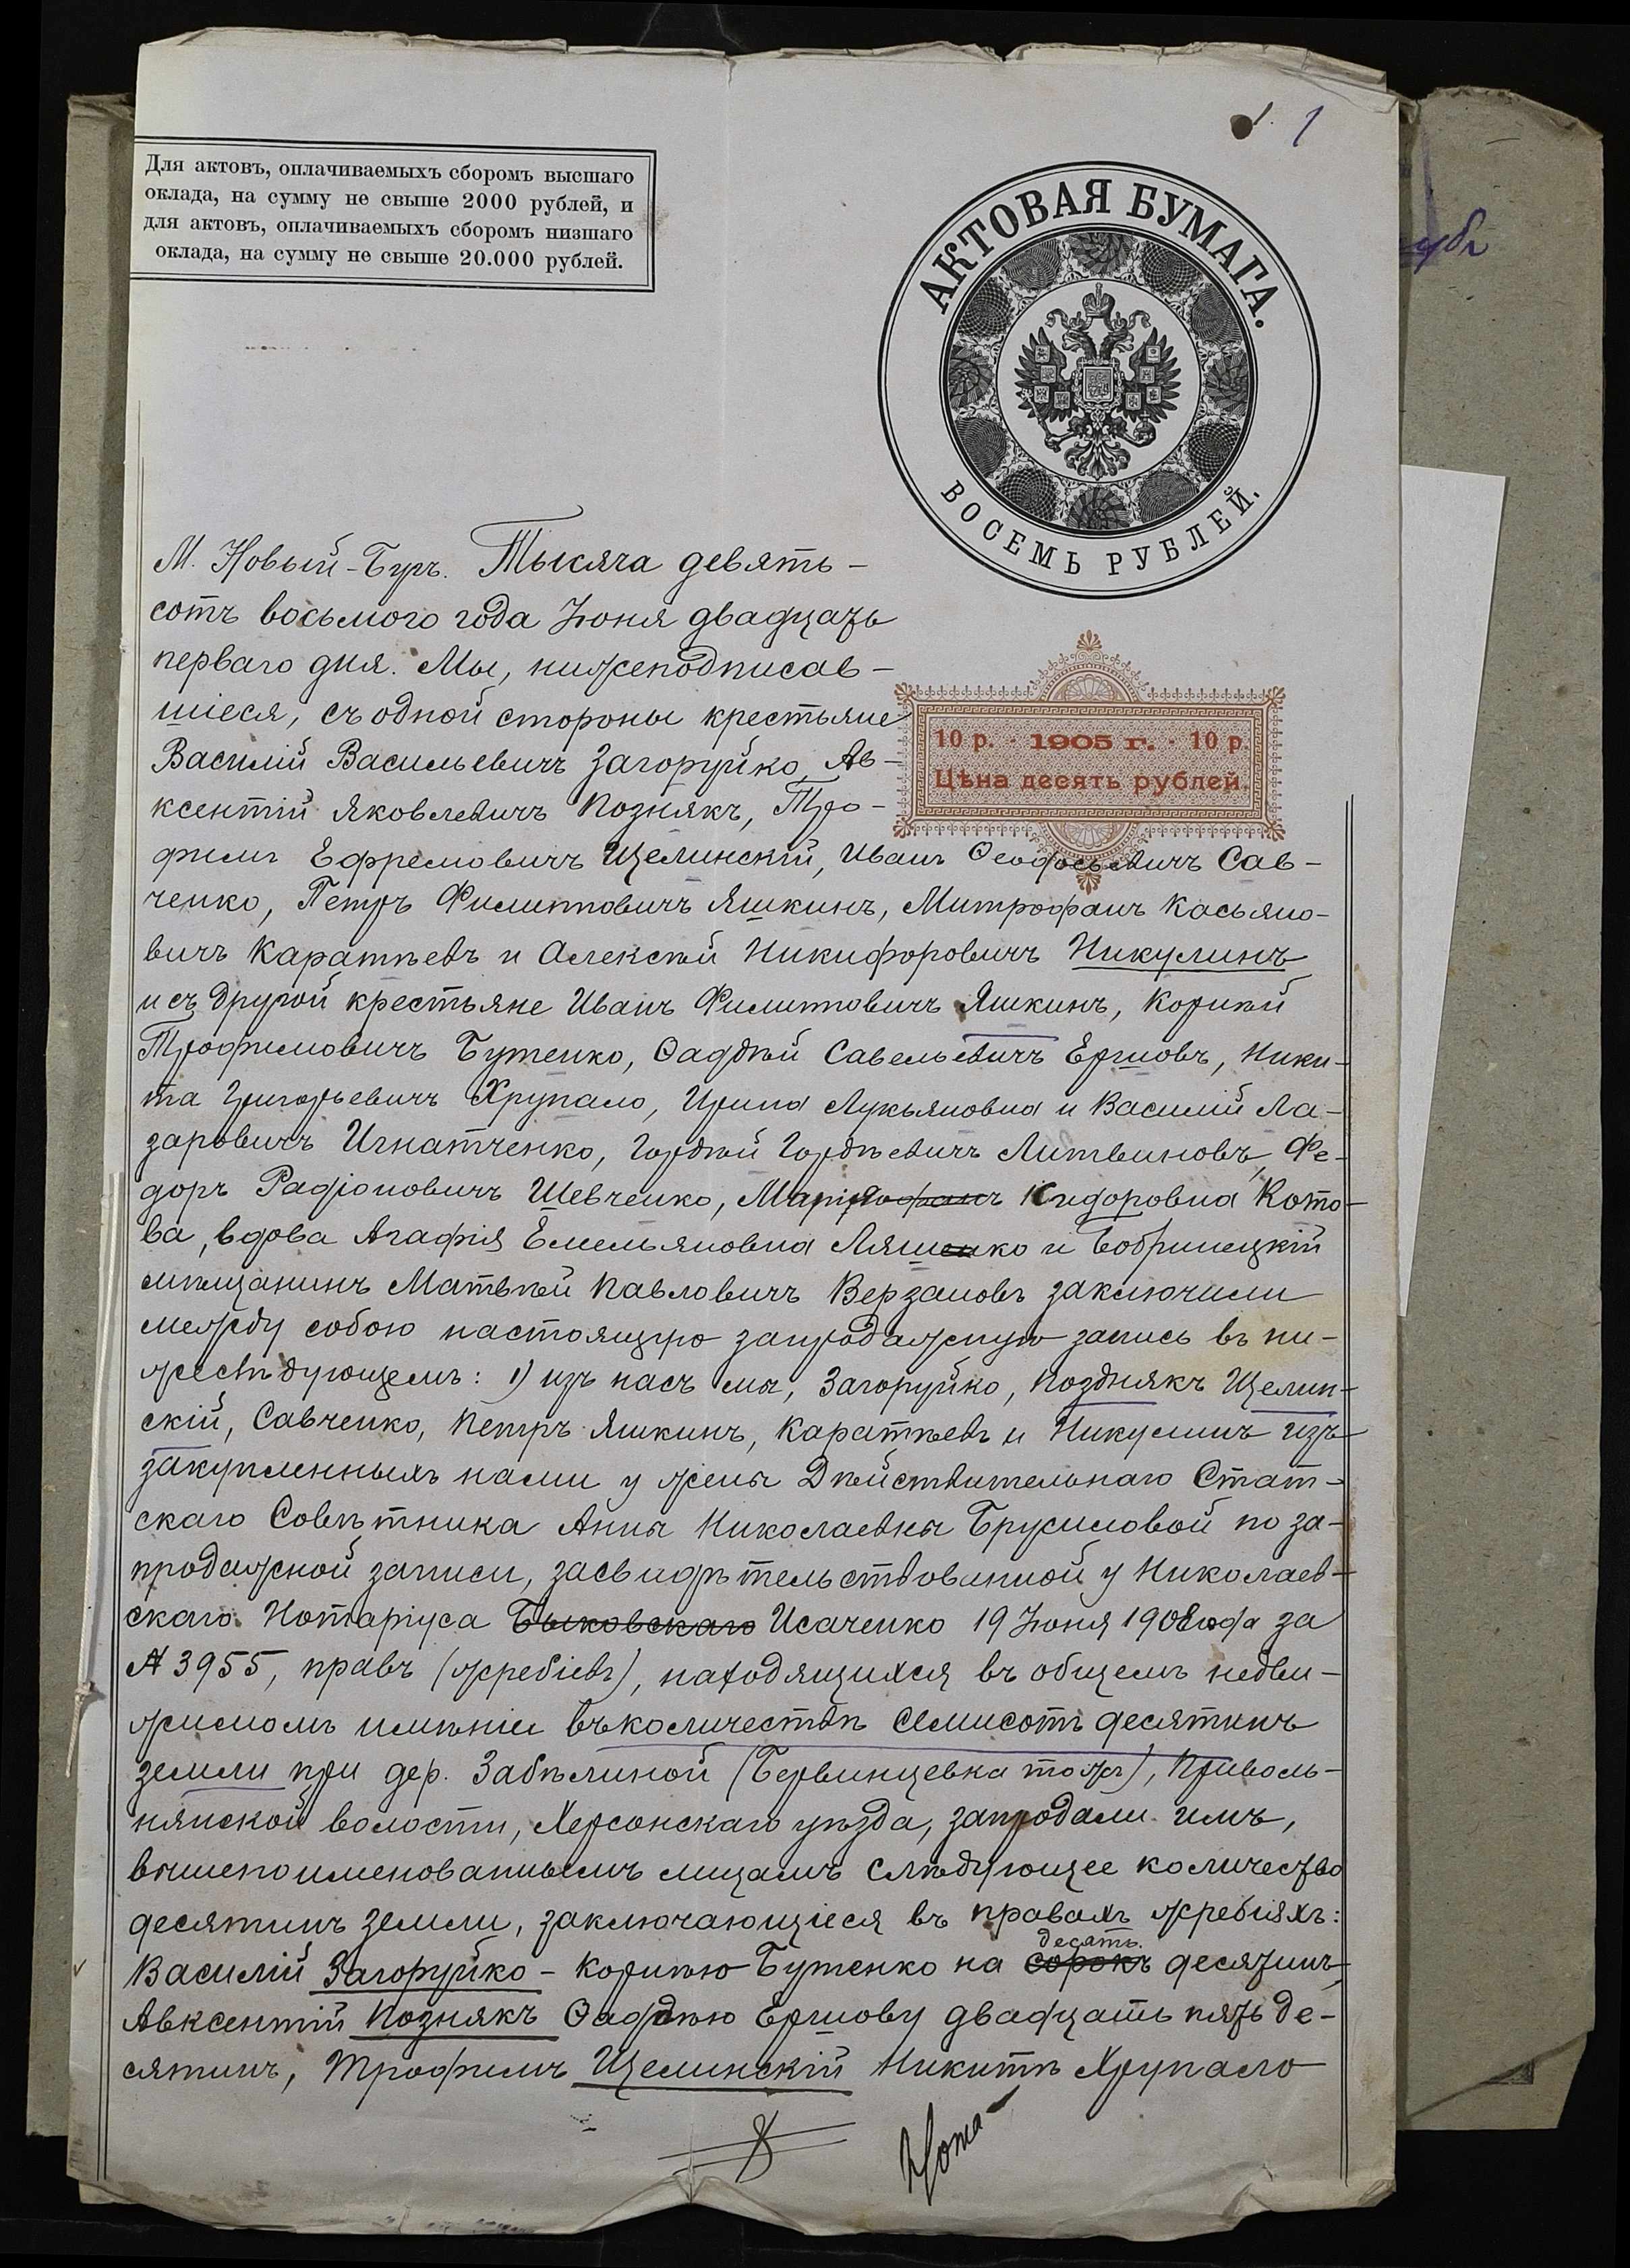 1
Для актовъ, оплачиваемыхъ сборомъ высшаго
оклада, на сумму не свыше 2000 рублей, и
для актовъ, оплачиваемыхъ сборомъ низшаго
оклада, на сумму не свыше 20.000 рублей.
АКТОВАЯ БУМАГА.
ВОСЕМЬ РУБЛЕЙ.
М. Новый-Бугъ. Тысяча девять-
сотъ восьмого года Іюня двадцать
перваго дня. Мы, нижеподписав-
шіеся, съ одной стороны крестьяне
10 р. · 1905 г. · 10 р.
Цѣна десять рублей.
Василій Васильевичъ Загоруйко, Ав-
ксентій Яковлевичъ Познякъ, Тро-
фимъ Ефремовичъ Щелинскій, Иванъ Ѳеодосьевичъ Сав-
ченко, Петръ Филипповичъ Яшкинъ, Митрофанъ Касьяно-
вичъ Каратѣевъ и Алексѣй Никифоровичъ Никулинъ
и съ другой крестьяне Иванъ Филипповичъ Яшкинъ, Корнѣй
Трофимовичъ Бутенко, Ѳаддѣй Савельевичъ Ершовъ, Ники-
та Григорьевичъ Хрупало, Ирина Лукьяновна и Василій Ла-
заровичъ Игнатченко, Гордѣй Гордѣевичъ Литвиновъ, Фе-
доръ Радіоновичъ Шевченко, Марія Сидоровна Кото-
ва, вдова Агафія Емельяновна Ляшенко и Бобринецкій
мѣщанинъ Матвѣй Павловичъ Верзановъ заключили
между собою настоящую запродажную запись въ ни-
жеслѣдующемъ: 1) изъ насъ мы, Загоруйко, Позднякъ Щелин-
скій, Савченко, Петръ Яшкинъ, Каратѣевъ и Никулинъ изъ
закупленныхъ нами у жены Дѣйствительнаго Стат-
скаго Совѣтника Анны Николаевны Брусиловой по за-
продажной записи, засвидѣтельствованной у Николаев-
скаго Нотаріуса Быковскаго Исаченко 19 Іюня 1908 года за
№ 3955, правъ (жребіевъ), находящихся въ общемъ недви-
жимомъ имѣніи въ количествѣ семисотъ десятинъ
земли при дер. Забѣлиной (Бервинцевка тожъ), Приволь-
нянской волости, Херсонскаго уѣзда, запродали имъ,
вышепоименованнымъ лицамъ слѣдующее количество
десятинъ земли, заключающіеся въ правахъ жребіяхъ:
десять
Василій Загоруйко - Корнѣю Бутенко на сорокъ десятинъ,
Авксентій Познякъ Ѳаддѣю Ершову двадцать пять де-
сятинъ, Трофимъ Щелинскій Никитѣ Хрупало
Нота-